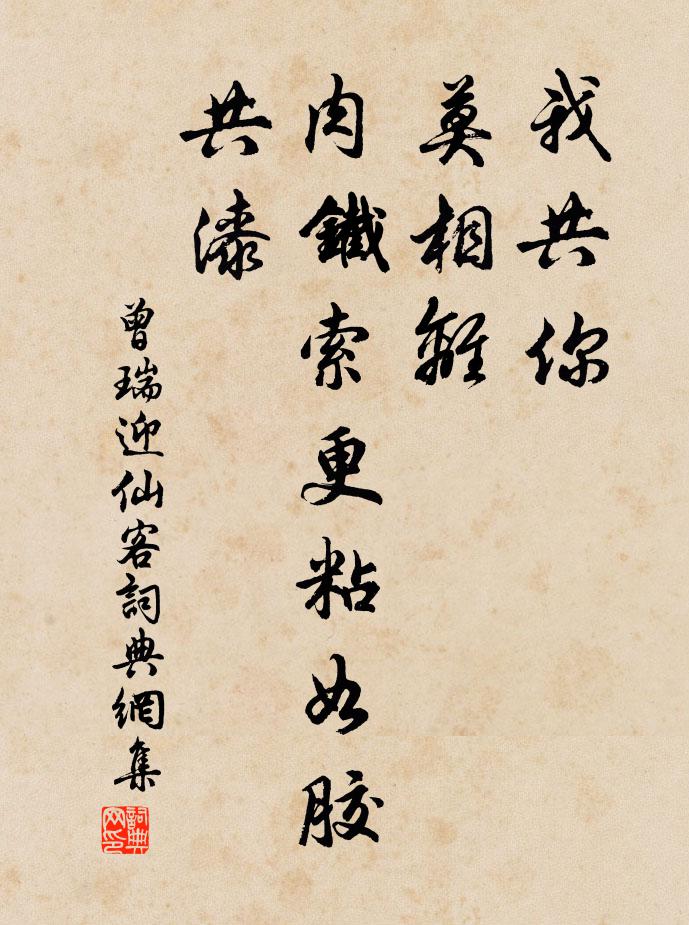 我共你
莫相離
肉鐵索更粘如膠
共漆
曾瑞迎仙客詞典網集
詞典网印